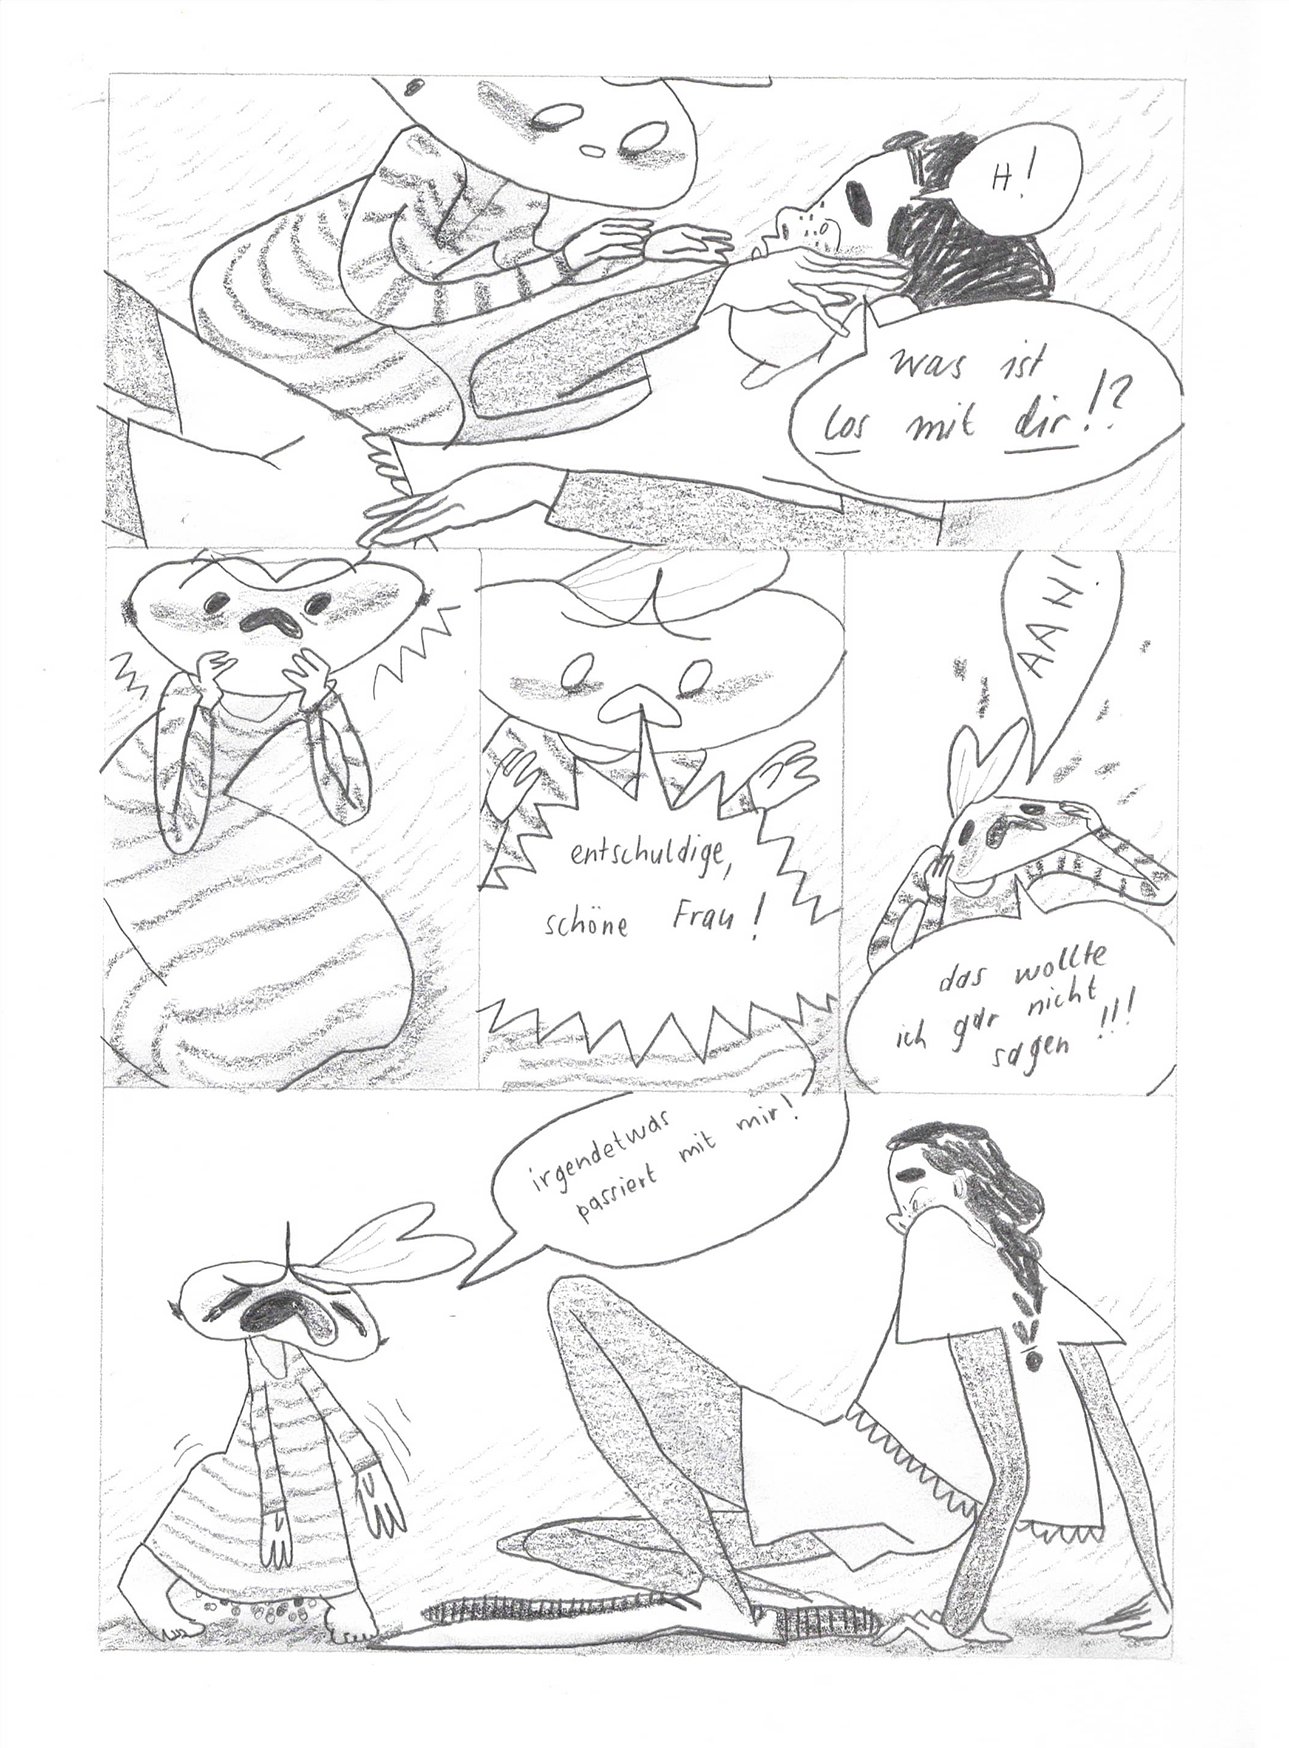 H!
was ist
los mit dir!?
entschuldige,
schöne Frau!
AAH!
das wollte
ich gar nicht
sagen!!!
irgendetwas
passiert mit mir!